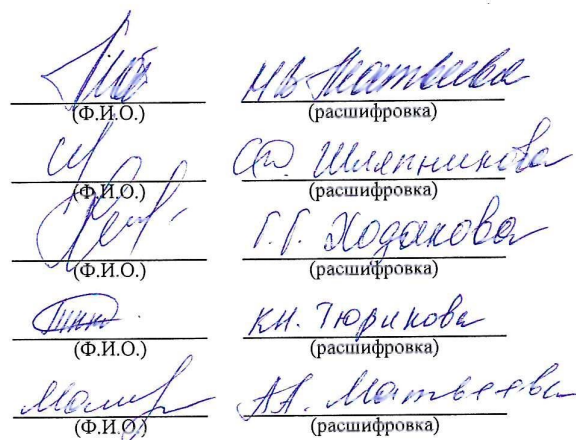 Н.В. Матвеева
(Ф.И.О.) (расшифровка)
С.Ю. Шляпникова
(Ф.И.О.) (расшифровка)
Г.Г. Ходакова
(Ф.И.О.) (расшифровка)
К.Н. Тюрикова
(Ф.И.О.) (расшифровка)
А.А. Матвеева
(Ф.И.О.) (расшифровка)